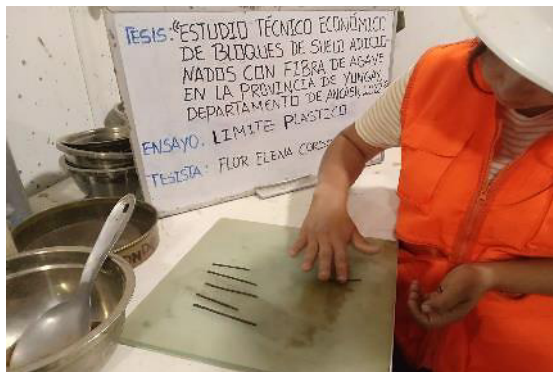 TESIS: "ESTUDIO TÉCNICO ECONÓMICO
DE BLOQUES DE SUELO ADICIO-
NADOS CON FIBRA DE AGAVE
EN LA PROVINCIA DE YUNGAY,
DEPARTAMENTO DE ANCASH,
ENSAYO. LIMITE PLASTICO
TESISTA: FLOR ELENA